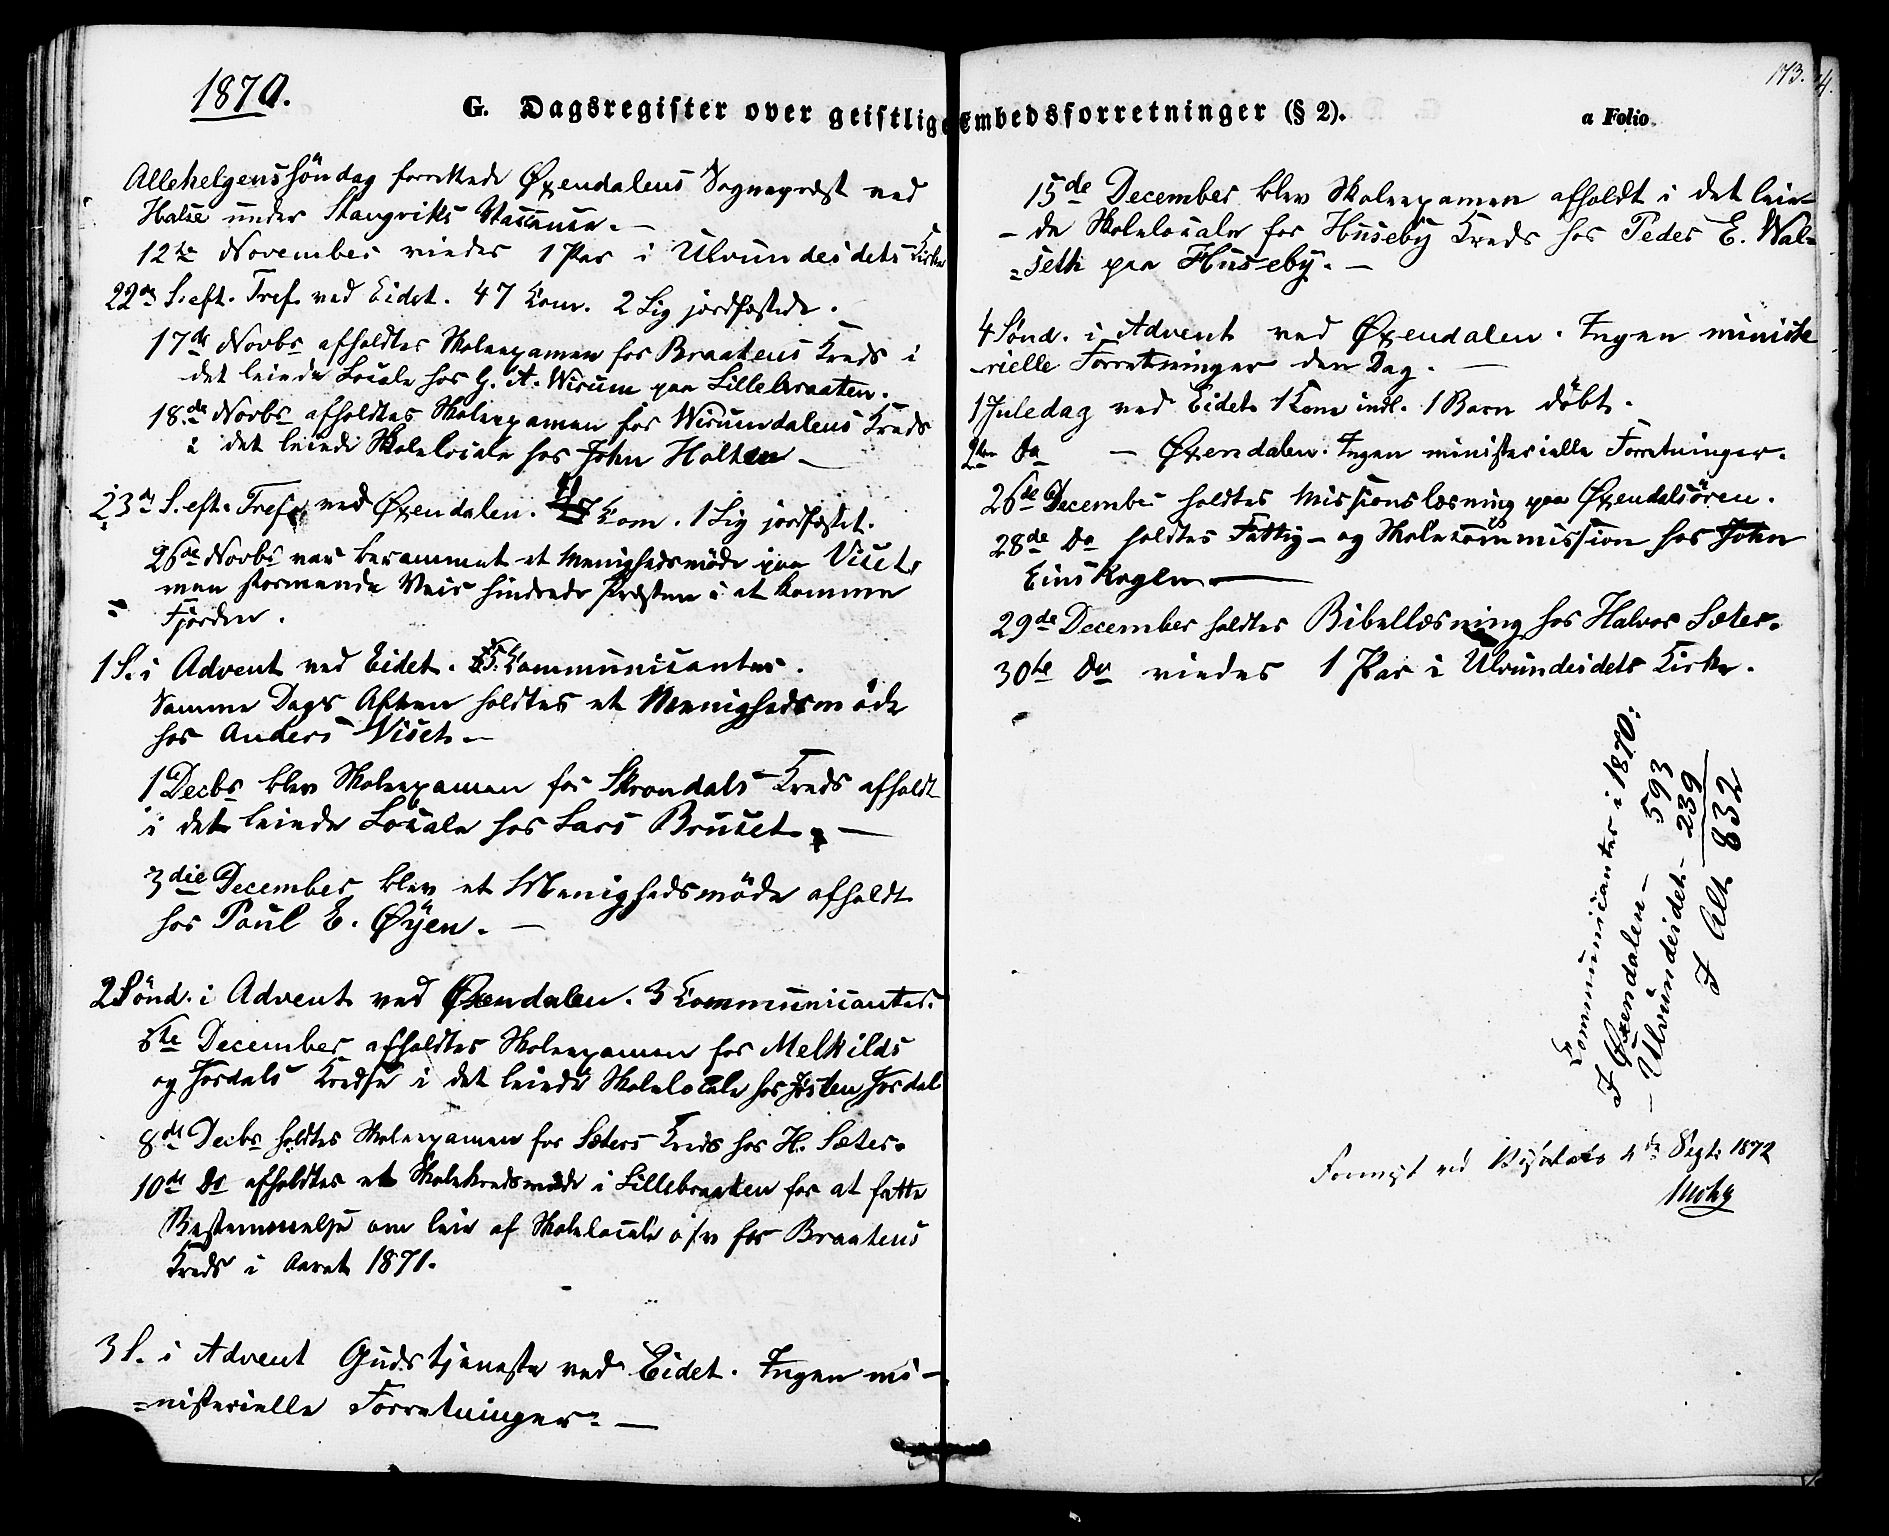 1870.
G. Dagsregister over geistlige Embedsforretninger (§ 2).
Allehelgenssöndag forrettede Øxendalens Sognepræst ved
Halse under Stangviks Vacance. —
12te November viedes 1 Par i Ulvundeidets Kirke
22de S. eft. Tref. ved Eidet. 47 Com. 2 Lig jordfæstede.
17de Novbr afholdtes Skoleexamen for Braatens Kreds i
det leiede Locale hos G. A. Wirum paa Lillebraaten.
18.de Novbr afholdtes Skoleexamen for Wirumdalens Kreds
i det leiede Skolelocale hos John Holten —
23de S. eft. Tref. ved Øxendalen. Com. 1 Lig jordfæstet.
26de Novbr var berammet et Menighedsmöde paa Viset,
men stormende Veir hindrede Præsten i at komme
= Fjorden.
1 S. i Advent ved Eidet. Kommunicanter.
Samme Dags Aften holdtes et Menighedsmöde
hos Anders Viset. —
1 Decbr blev Skoleexamen for Skrondals Kreds afholdt
i det leiede Locale hos Lars Bruset. —
3die December blev et Menighedsmöde afholdt
hos Paul E. Øÿen. —
2 Sönd. i Advent ved Øxendalen. 3 Communicanter.
6te December afholdtes Skoleexamen for Melkilds
og Jordals Kredse i det leiede Skolelocale hos Josten Jordal
8de Decbr holdtes Skoleexamen for Sæters Kreds hos H. Sæter.
10de Do afholdtes et Skolekredsmöde i Lillebraaten for at fatte
Bestemmelse om leie af Skolelocale osv for Braatens
Kreds i Aaret 1871.
3 S. i Advent Gudstjeneste ved Eidet. Ingen mi-
=nisterielle Forretninger. —
173.
a Folio.
15de December blev Skoleexamen afholdt i det leie-
-de Skolelocale for Husebÿ Kreds hos Peder E. Wal=
=seth paa Husebÿ. —
4 Sönd. i Advent ved Øxendalen. Ingen ministe
-rielle Forretninger den Dag. —
1 Juledag ved Eidet 1 Kone indl. 1 Barn döbt.
2den Do — Øxendalen. Ingen ministerielle Forretninger.
26de December holdtes Missionslæsning paa Øxendalsören.
28de Do holdtes Fattig- og Skolecommission hos John
Einskaglen —
29de December holdtes Bibellæsning hos Halvor Sæter.
30te Do viedes 1 Par i Ulvundeidets Kirke.
Communicanter i 1870:
I Øxendalen — 593
— Ulvundeidet — 239
I Alt 832
ved 4de Septr 1872